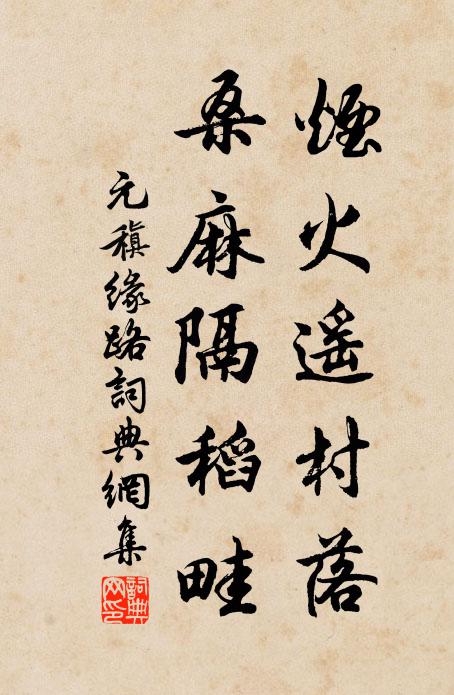 煙火遥村落
桑麻隔稻畦
元稹緣路詞典網集
詞典網印